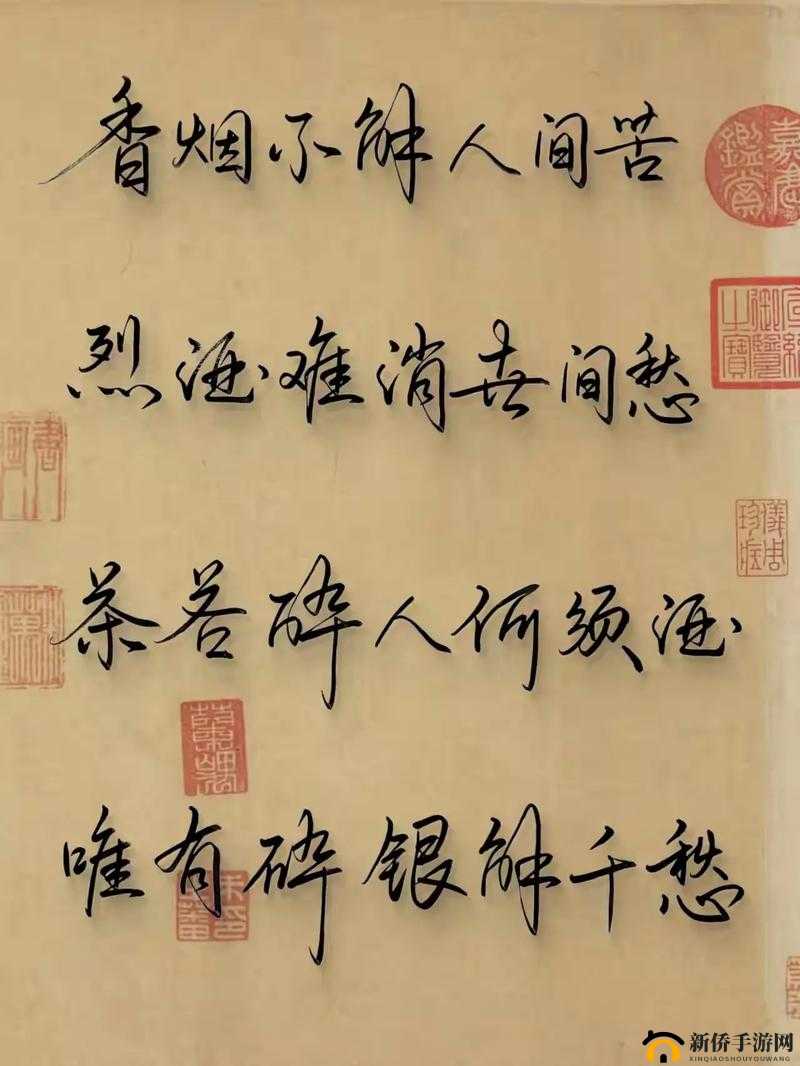 香烟不解人间苦
烈酒难消世间愁
茶若醉人何须酒
唯有碎银解千愁
新侨手游网
XINQIAOSHOUYOUWANG